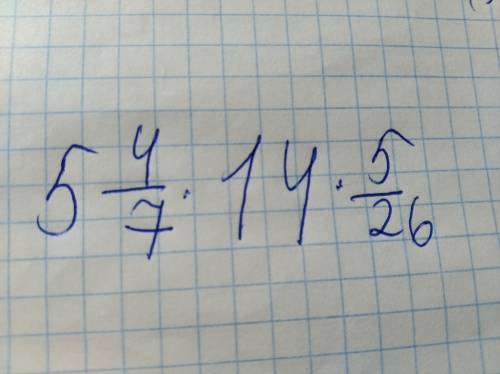 5 4/7 · 14 · 5/26